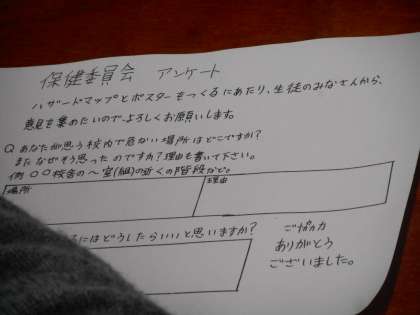 保健委員会 アンケート
ハザードマップとポスターをつくるにあたり、生徒のみなさんから、
意見を集めたいのでよろしくお願いします。
Q あなたが思う校内で危ない場所はどこですか?
またなぜそう思ったのですか?理由も書いて下さい。
例 〇〇校舎の〜室(組)の近くの階段など。
場所 理由
るにはどうしたらいいと思いますか?
ご協力
ありがとう
ございました。